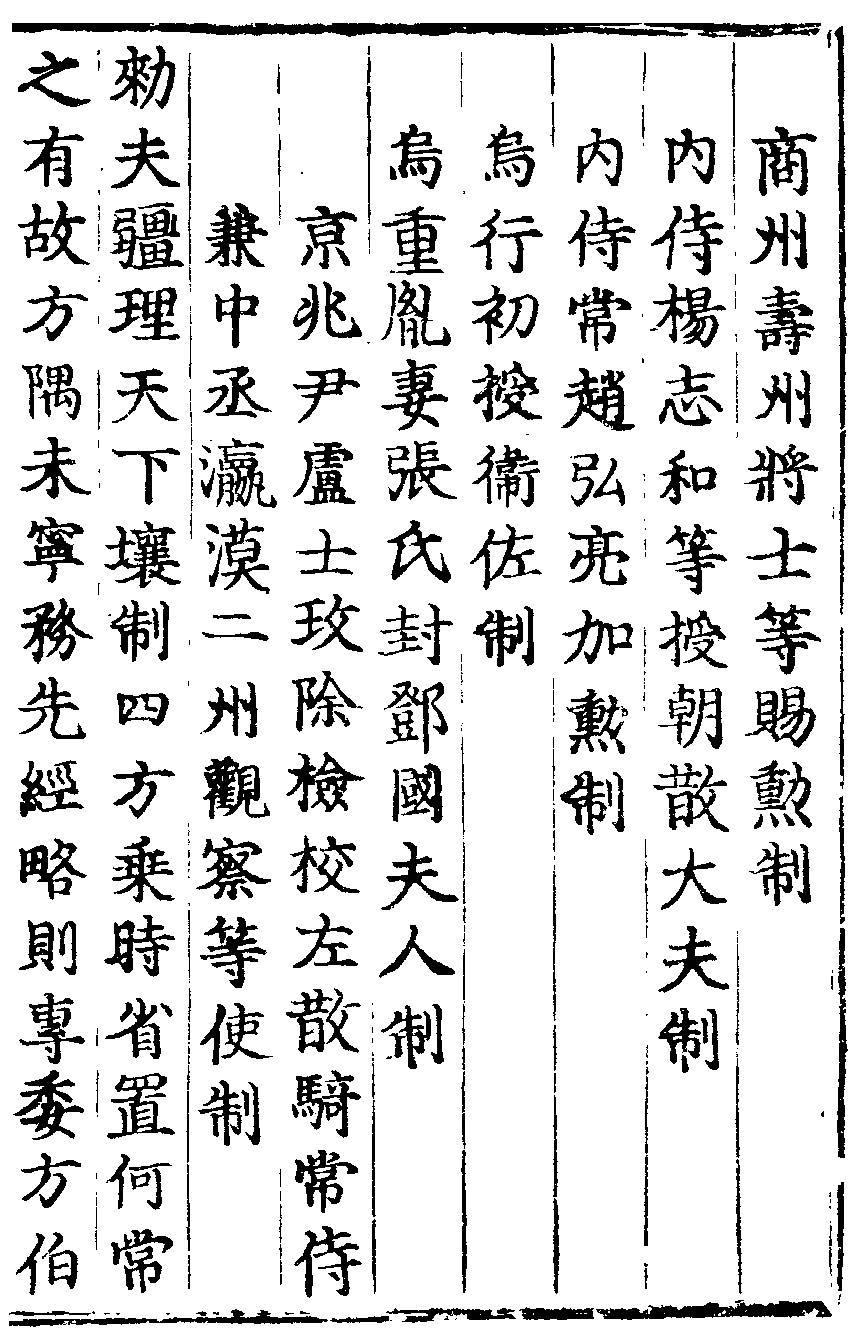 商州壽州將士等賜勲制
内侍楊志和等授朝散大夫制
内侍常趙弘亮加勲制
烏行初授衞佐制
烏重胤妻張氏封鄧國夫人制
京兆尹盧士玫除檢校左散騎常侍
兼中丞瀛漠二州觀察等使制
勑夫疆理天下壤制四方乗時省置何常
之有故方隅未寧務先經略則專委方伯